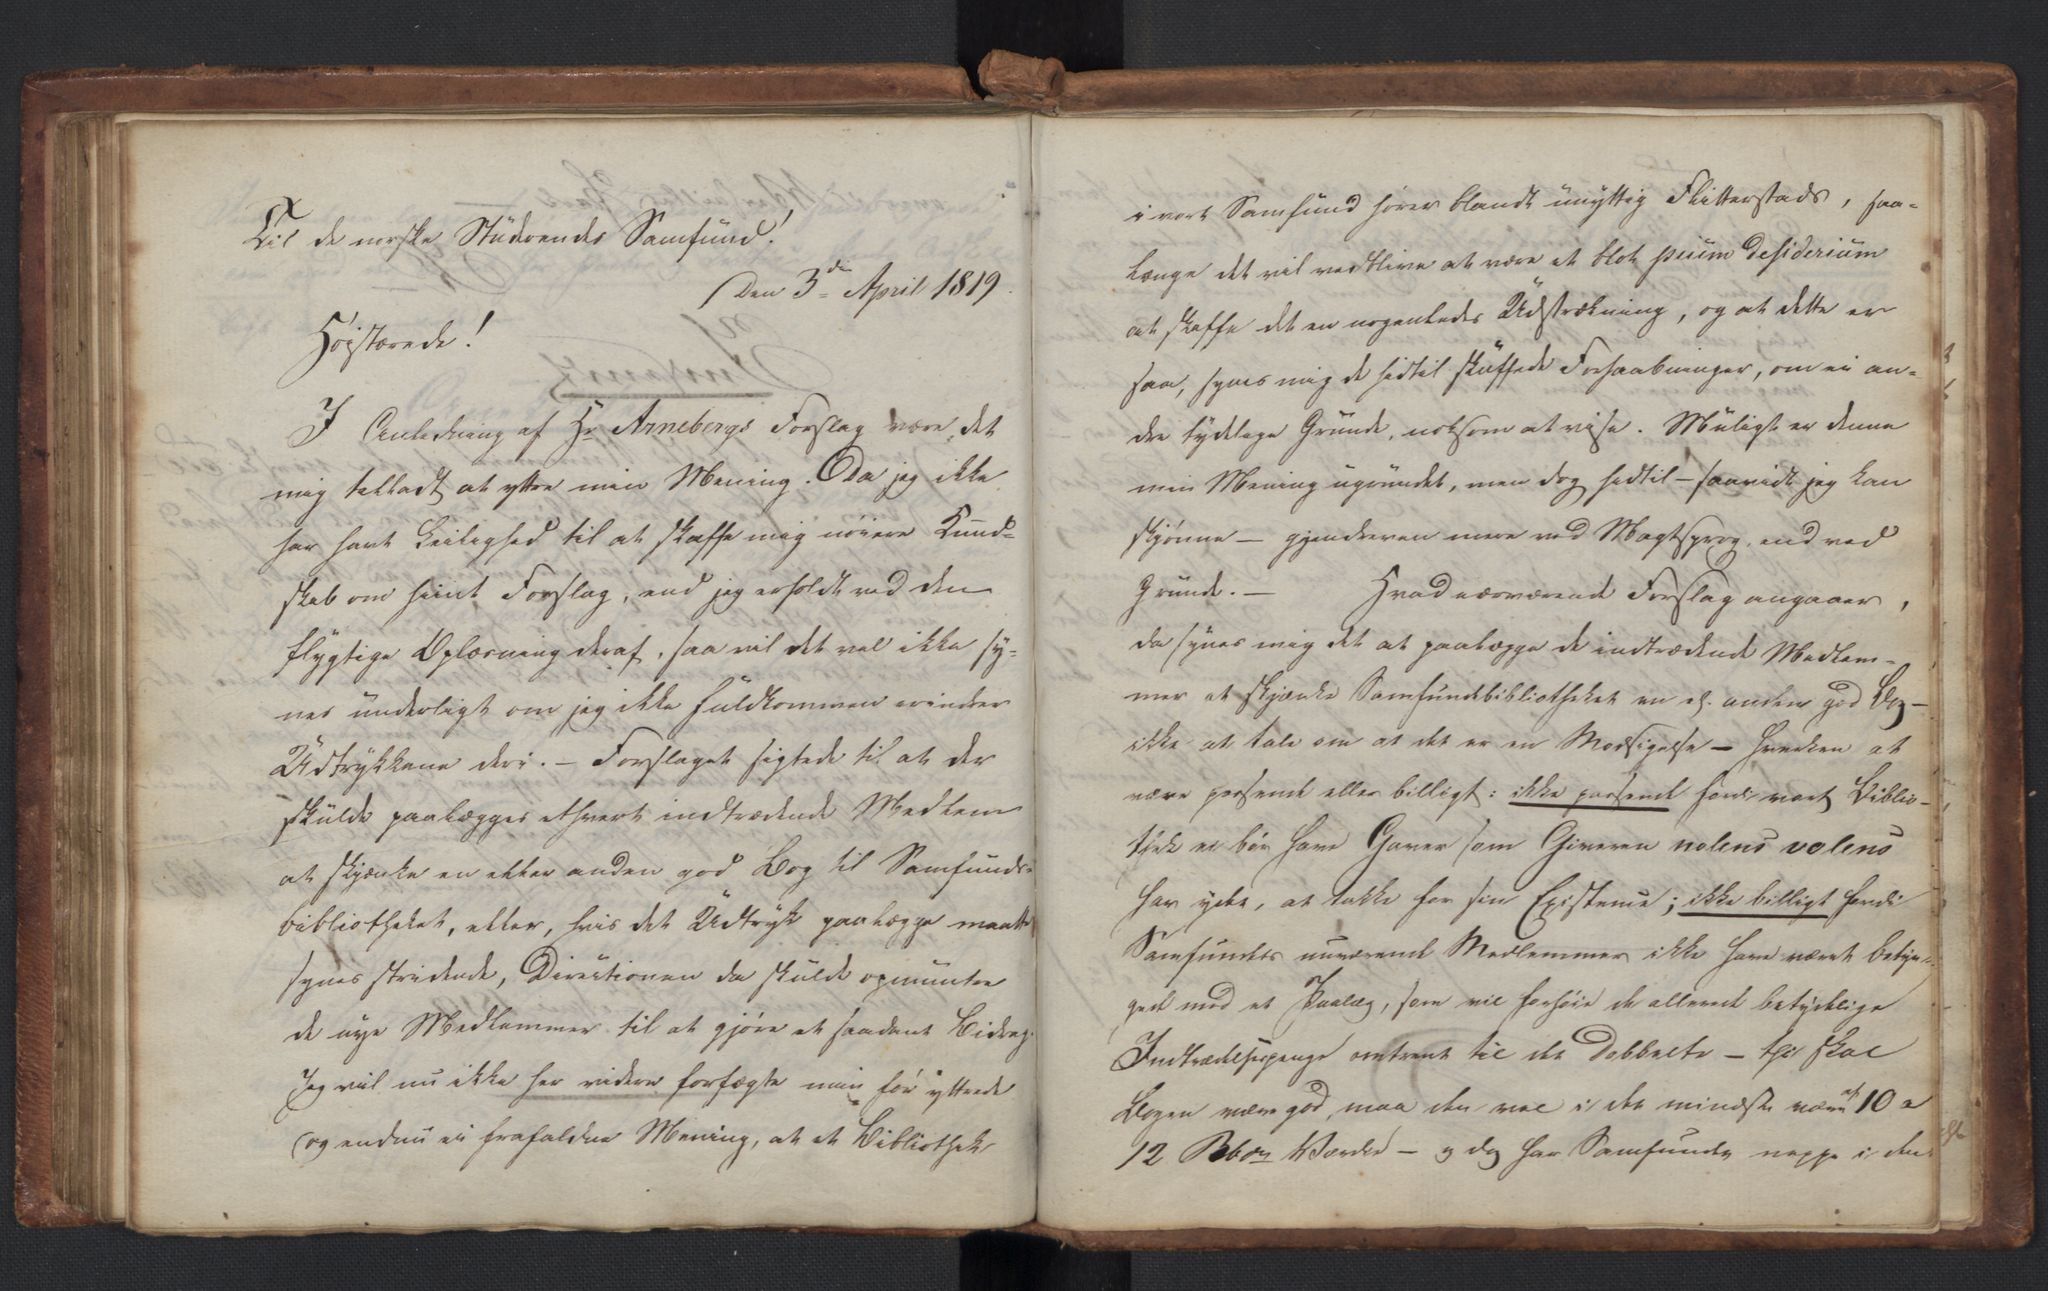 Til de norske Studerendes Samfund!
Den 3die April 1819.
Høistærede!
I Anledning af Hr Arnebergs Forslag være det
mig tilladt at yttre min Mening. Da jeg ikke
har havt Leilighed til at skaffe mig nøiere Kund-
skab om hiint Forslag, end jeg erholdt ved den
flygtige Oplæsning deraf, saa vil det vel ikke sy-
nes underligt om jeg ikke fuldkommen erindrer
Udtrykkene deri. – Forslaget sigtede til at der
skulde paalægges ethvert indtrædende Medlem
at skjænke en eller anden god Bog til Samfunds-
bibliotheket, eller, hvis det Udtryk paalægge maatte
synes stridende, Directionen da skulde opmuntre
de nye Medlemmer til at gjøre et saadant Bidrag.
Jeg vil nu ikke her videre forfægte min før yttrede
og endnu ei frafaldne Mening, at et Bibliothek
i vort Samfund hører blandt unyttig Flitterstads, saa-
længe det vil vedblive at være et blot pium desiderium
at skaffe det en nogenledes Udstrækning, og at dette er
saa, synes mig de hidtil skuffede Forhaabninger, om ei an-
dre tydelige Grunde, noksom at vise. Muligt er denne
min Mening ugrundet, men dog hidtil – saavidt jeg kan
skjønne – gjendreven mere ved Magtsprog, end ved
Grunde. – Hvad nærværende Forslag angaaer,
da synes mig det at paalægge de indtrædende Medlem-
mer at skjænke Samfundsbibliotheket en el. anden god Bog –
ikke at tale om at det er en Modsigelse – hverken at
være passende eller billigt: ikke passende fordi vort Biblio-
thek ei bør have Gaver som Giveren nolens volens
har ydet, at takke for sin Existence; ikke billigt fordi
Samfundets nuværende Medlemmer ikke have været betyn-
gede med et Paalæg, som vil forhøie de allerede betydelige
Indtrædelsespenge omtrent til det Dobbelte – thi skal
Bogen være god, maa den vel i det mindste være af 10 a
12 Rbdlr Værdie – og dog har Samfundet neppe i den